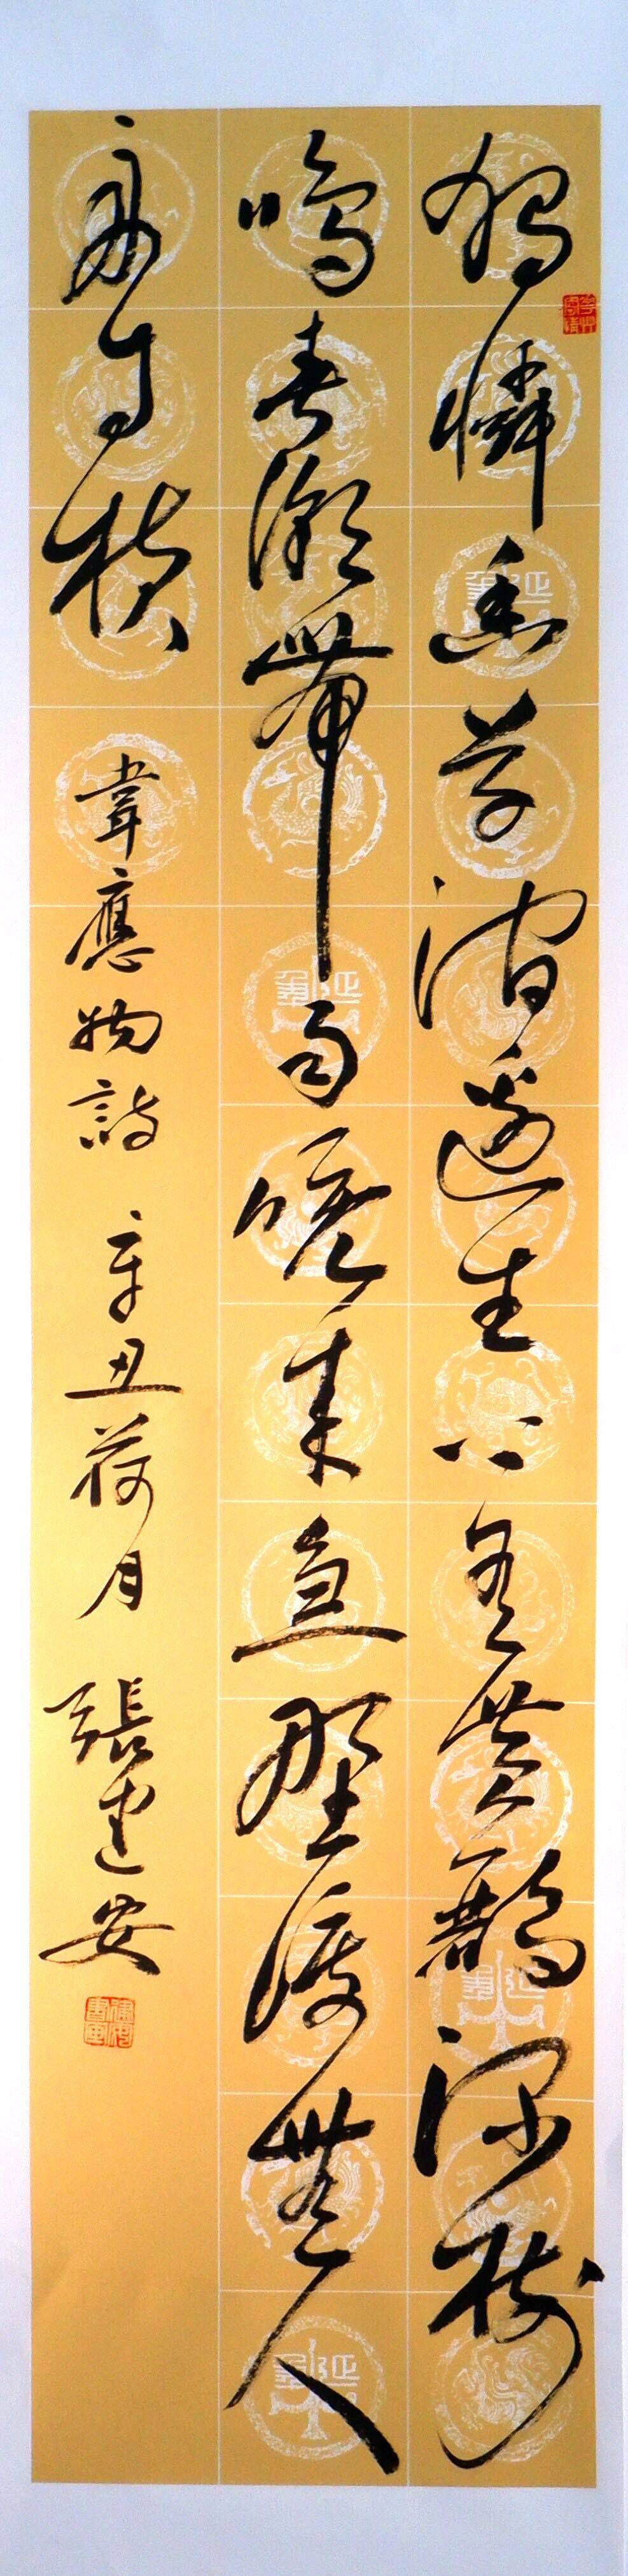 獨憐幽草澗邊生上有黃鸝深樹
鳴春潮帶雨晚來急野渡無人
舟自橫 韋應物詩 辛丑荷月 張建安